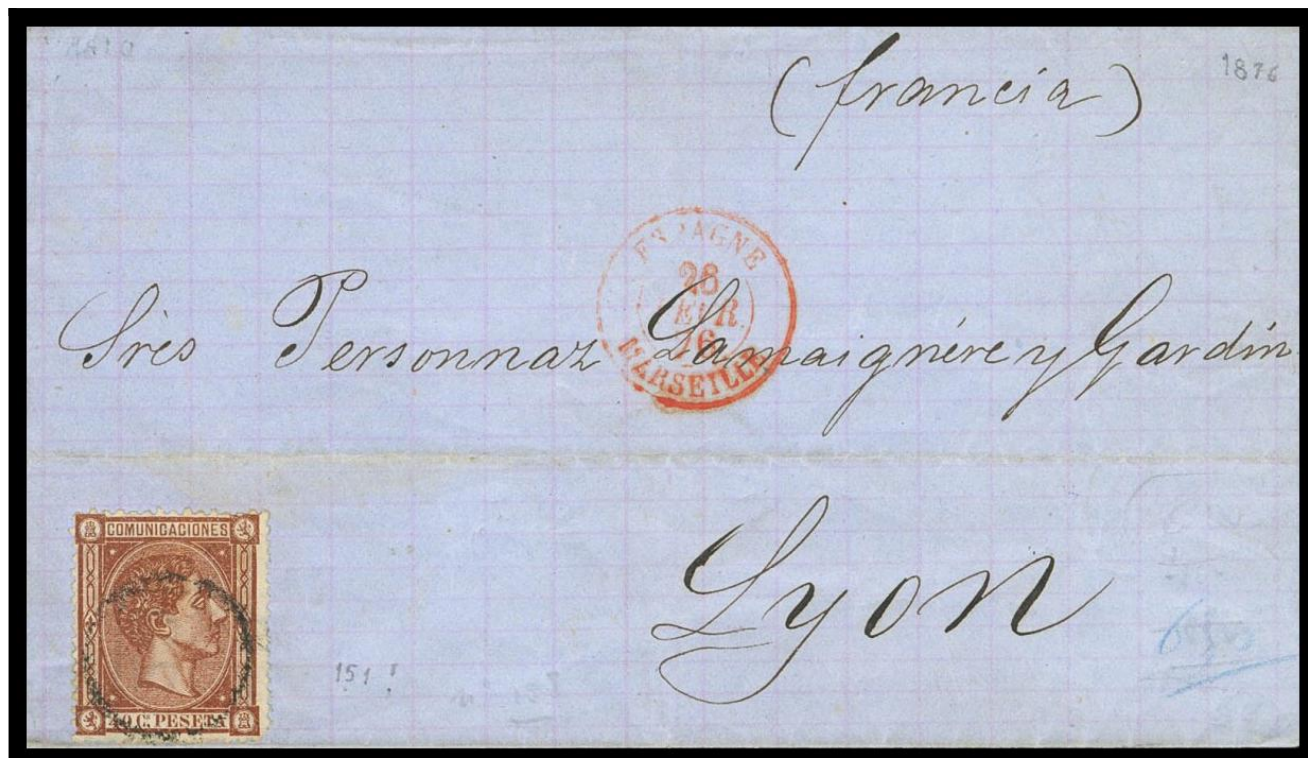 1876
(francia)
ESPAGNE
28
FEVR.
76
MARSEILLE
Srès Personnaz Lamaignére y Gardín
Lyon
COMUNICACIONES
40 Cs PESETA
151